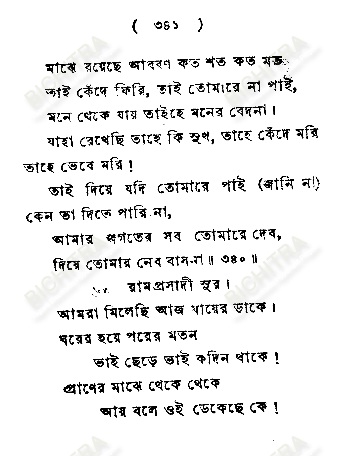 ( ৩৪১ )
মাঝে রয়েছে আবরণ কত শত কত মত
তাই কেঁদে ফিরি, তাই তোমারে না পাই,
মনে থেকে যায় তাইহে মনের বেদনা।
যাহা রেখেছি তাহে কি সুখ, তাহে কেঁদে মরি
তাহে ভেবে মরি !
তাই দিয়ে যদি তোমারে পাই (জানি না)
কেন তা দিতে পারি না,
আমার জগতের সব তোমারে দেব,
দিয়ে তোমায় নেব বাসনা॥ ৩৪০॥
রামপ্রসাদী সুর।
আমরা মিলেছি আজ মায়ের ডাকে।
ঘরের হয়ে পরের মতন
ভাই ছেড়ে ভাই কদিন থাকে !
প্রাণের মাঝে থেকে থেকে
আয় বলে ওই ডেকেছে কে !
BICHITRA
BICHITRA
BICHITRA
BICHITRA